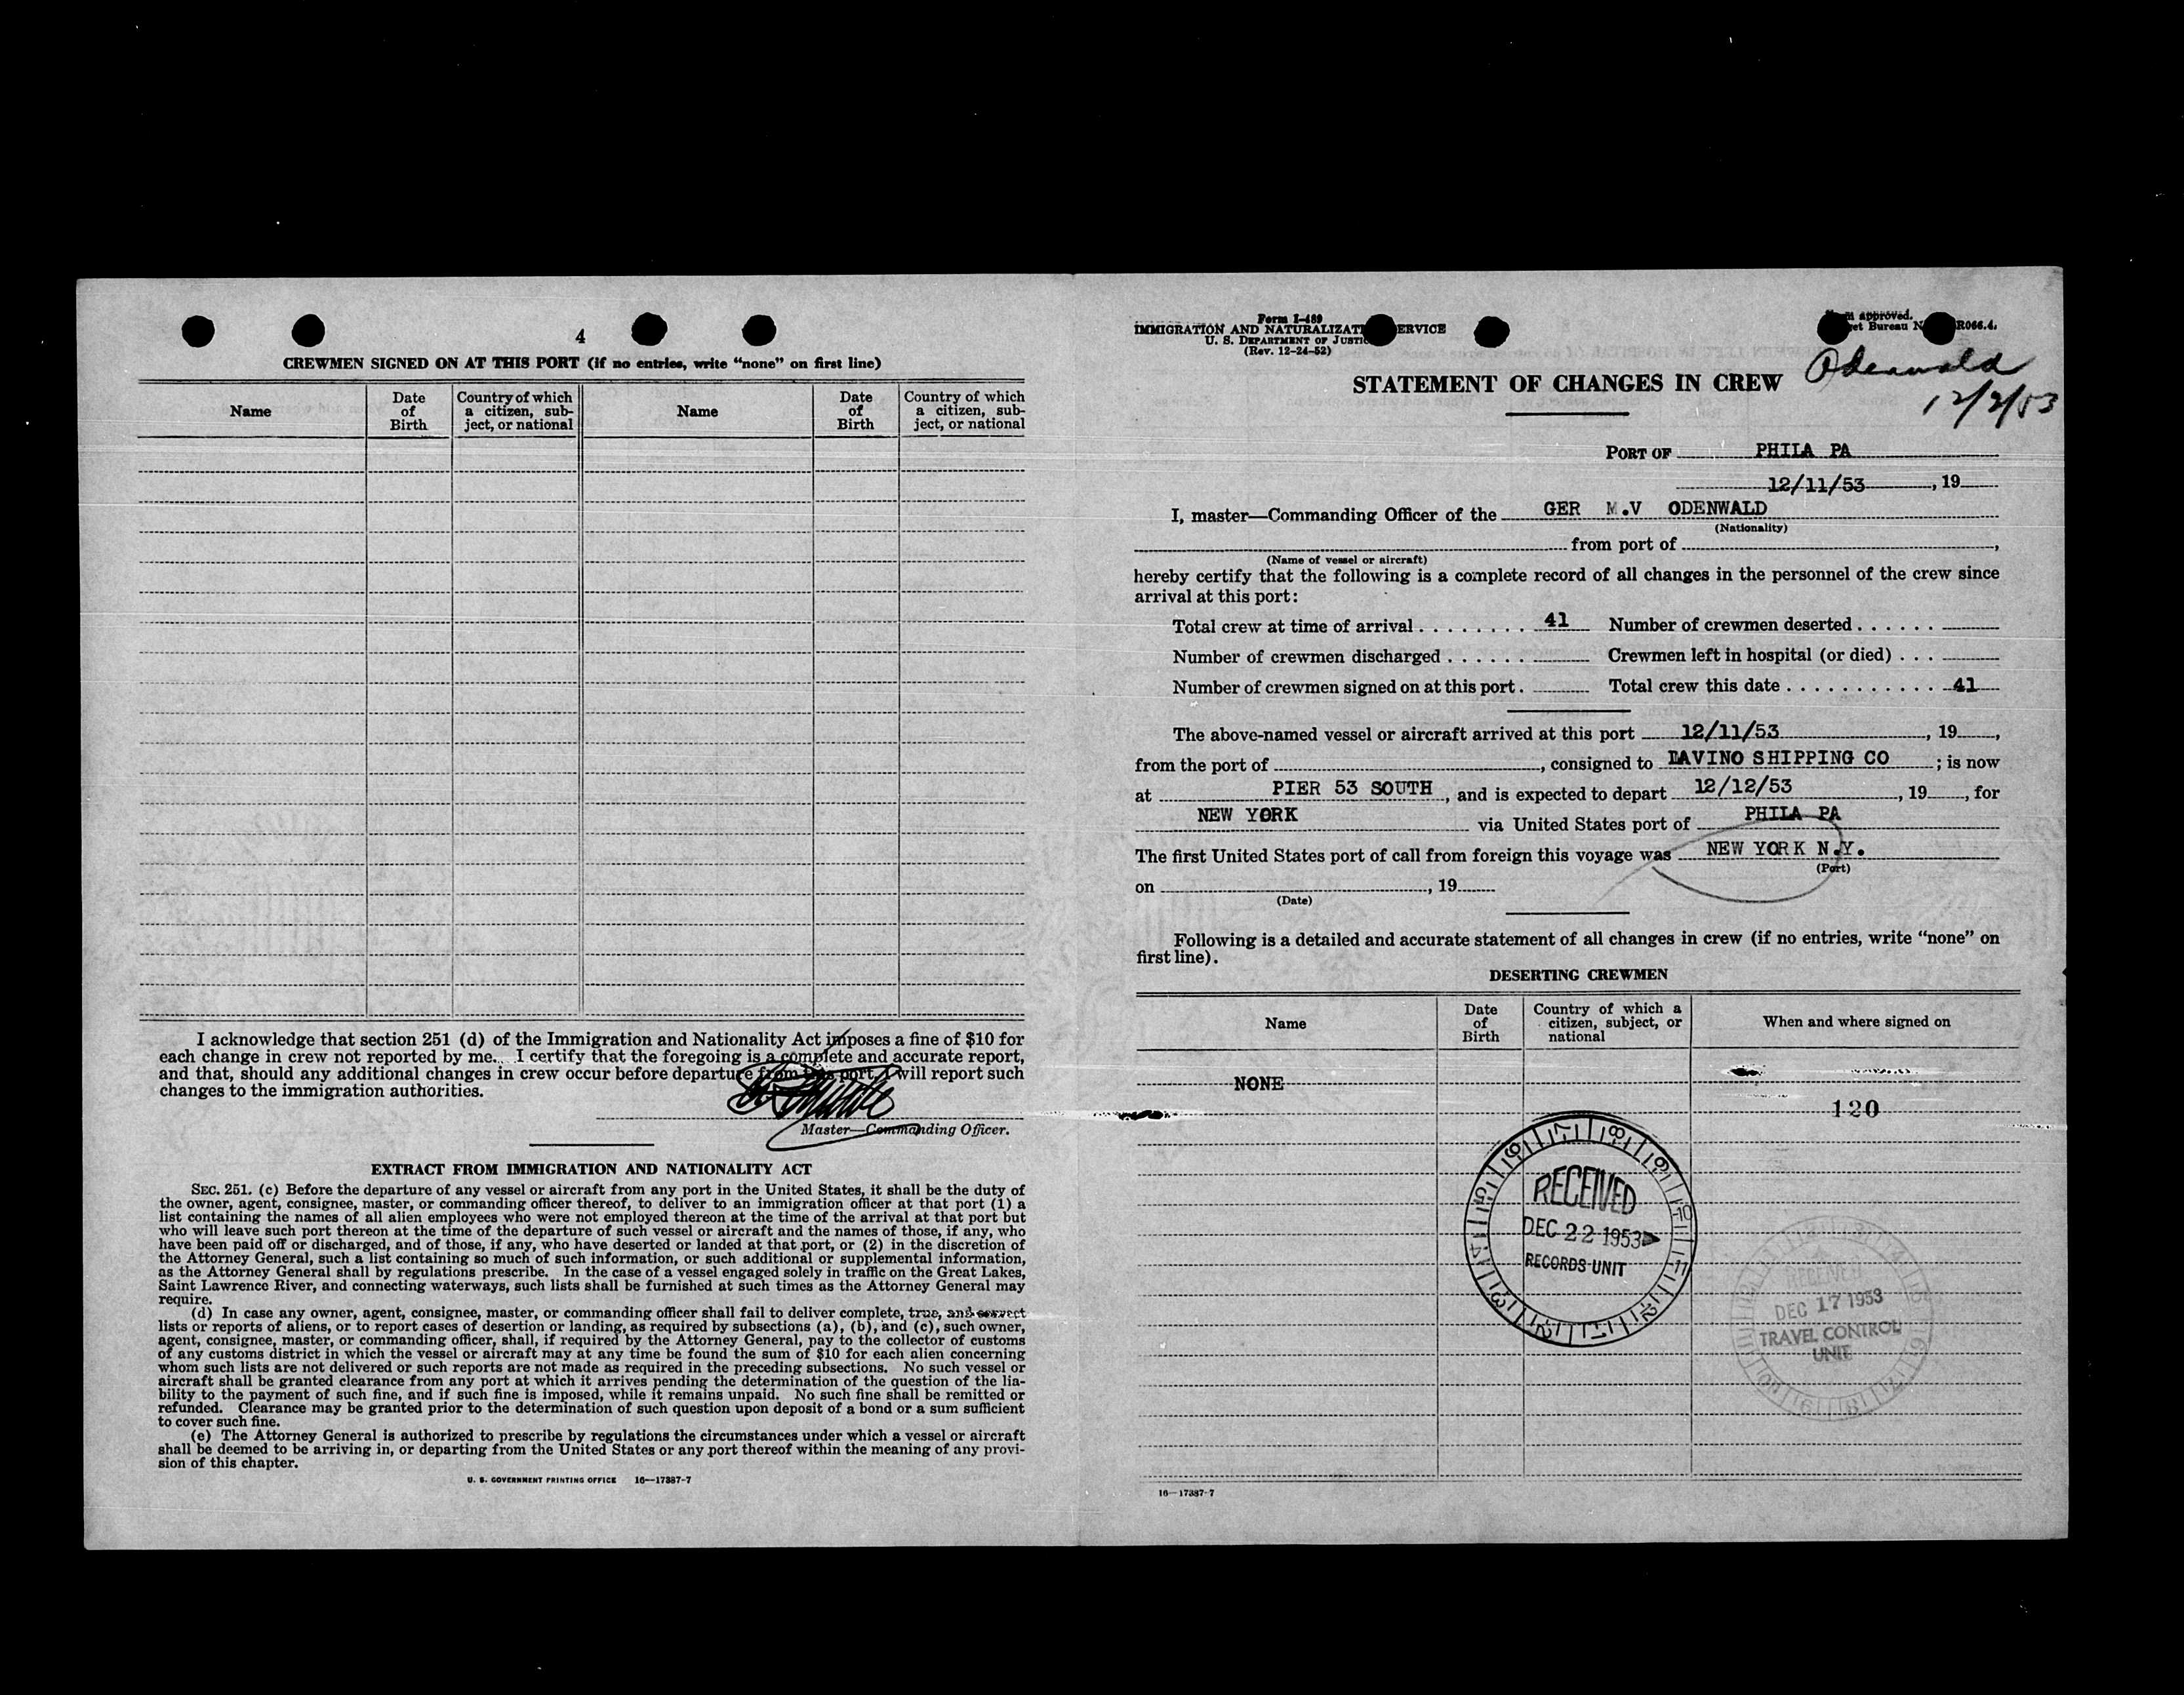 4
CREWMEN SIGNED ON AT THIS PORT (if no entries, write “none” on first line)
Name
Date of Birth
Country of which a citizen, sub-ject, or national
Name
Date of Birth
Country of which a citizen, sub-ject, or national
I acknowledge that section 251 (d) of the Immigration and Nationality Act imposes a fine of $10 for
each change in crew not reported by me. I certify that the foregoing is a complete and accurate report,
and that, should any additional changes in crew occur before departure from this port, I will report such
changes to the immigration authorities.
Master—Commanding Officer.
EXTRACT FROM IMMIGRATION AND NATIONALITY ACT
SEC. 251. (c) Before the departure of any vessel or aircraft from any port in the United States, it shall be the duty of
the owner, agent, consignee, master, or commanding officer thereof, to deliver to an immigration officer at that port (1) a
list containing the names of all alien employees who were not employed thereon at the time of the arrival at that port but
who will leave such port thereon at the time of the departure of such vessel or aircraft and the names of those, if any, who
have been paid off or discharged, and of those, if any, who have deserted or landed at that port, or (2) in the discretion of
the Attorney General, such a list containing so much of such information, or such additional or supplemental information,
as the Attorney General shall by regulations prescribe. In the case of a vessel engaged solely in traffic on the Great Lakes,
Saint Lawrence River, and connecting waterways, such lists shall be furnished at such times as the Attorney General may
require.
(d) In case any owner, agent, consignee, master, or commanding officer shall fail to deliver complete, true, and correct
lists or reports of aliens, or to report cases of desertion or landing, as required by subsections (a), (b), and (c), such owner,
agent, consignee, master, or commanding officer, shall, if required by the Attorney General, pay to the collector of customs
of any customs district in which the vessel or aircraft may at any time be found the sum of $10 for each alien concerning
whom such lists are not delivered or such reports are not made as required in the preceding subsections. No such vessel or
aircraft shall be granted clearance from any port at which it arrives pending the determination of the question of the lia-
bility to the payment of such fine, and if such fine is imposed, while it remains unpaid. No such fine shall be remitted or
refunded. Clearance may be granted prior to the determination of such question upon deposit of a bond or a sum sufficient
to cover such fine.
(e) The Attorney General is authorized to prescribe by regulations the circumstances under which a vessel or aircraft
shall be deemed to be arriving in, or departing from the United States or any port thereof within the meaning of any provi-
sion of this chapter.
U. S. GOVERNMENT PRINTING OFFICE 16—17387-7
Form I-489
IMMIGRATION AND NATURALIZAT ERVICE
U. S. DEPARTMENT OF JUSTIC
(Rev. 12-24-52)
m approved.
et Bureau N R066.4.
Odenwald
12/2/53
STATEMENT OF CHANGES IN CREW
PORT OF PHILA PA
12/11/53, 19
I, master—Commanding Officer of the GER M.V ODENWALD
(Nationality)
from port of ,
(Name of vessel or aircraft)
hereby certify that the following is a complete record of all changes in the personnel of the crew since
arrival at this port:
Total crew at time of arrival . . . . . . . . 41 Number of crewmen deserted . . . . . .
Number of crewmen discharged . . . . . . Crewmen left in hospital (or died) . . .
Number of crewmen signed on at this port . Total crew this date . . . . . . . . . . . . 41
The above-named vessel or aircraft arrived at this port 12/11/53, 19 ,
from the port of , consigned to LAVINO SHIPPING CO ; is now
at PIER 53 SOUTH, and is expected to depart 12/12/53, 19 , for
NEW YORK via United States port of PHILA PA
The first United States port of call from foreign this voyage was NEW YORK N.Y.
(Port)
on , 19
(Date)
Following is a detailed and accurate statement of all changes in crew (if no entries, write “none” on
first line).
DESERTING CREWMEN
Name
Date of Birth
Country of which a citizen, subject, or national
When and where signed on
NONE
120
RECEIVED
DEC 22 1953
RECORDS UNIT
RECEIVED
DEC 17 1953
TRAVEL CONTROL
UNIT
16—17387-7